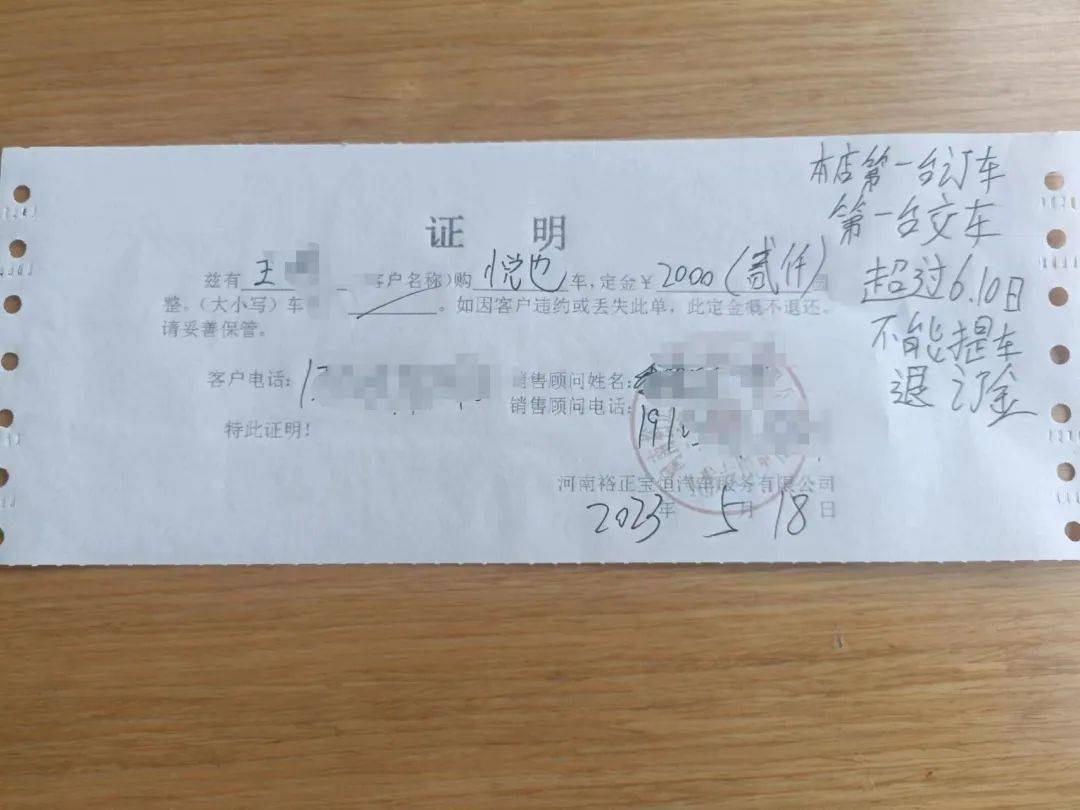 证 明
兹有 王 客户名称)购 悦也 车,定金¥ 2000(贰仟) 圆
整。(大小写)车 。如因客户违约或丢失此单,此定金概不退还。
请妥善保管。
客户电话: 1
销售顾问姓名:
销售顾问电话: 191
特此证明!
河南裕正宝恒汽车服务有限公司
2023 年 5 月 18 日
本店第一台订车
第一台交车
超过6.10日
不能提车
退订金